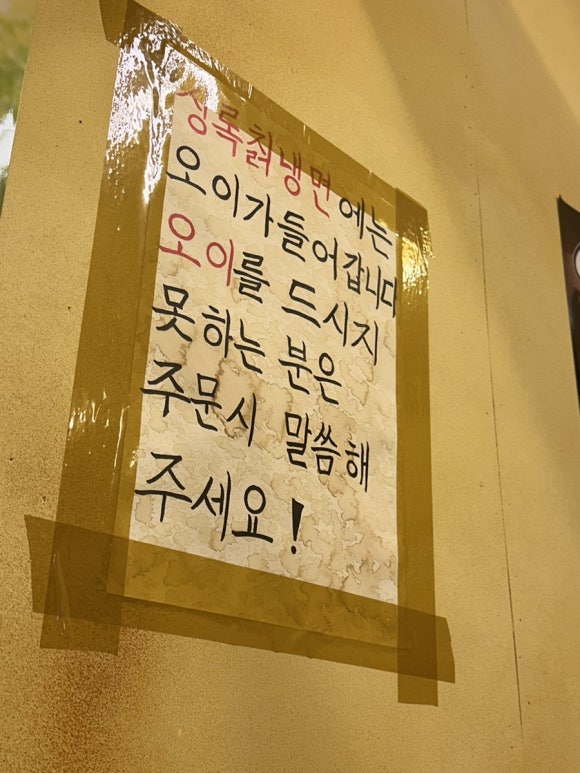 상록칡냉면에는
오이가들어갑니다
오이를 드시지
못하는 분은
주문시 말씀해
주세요!